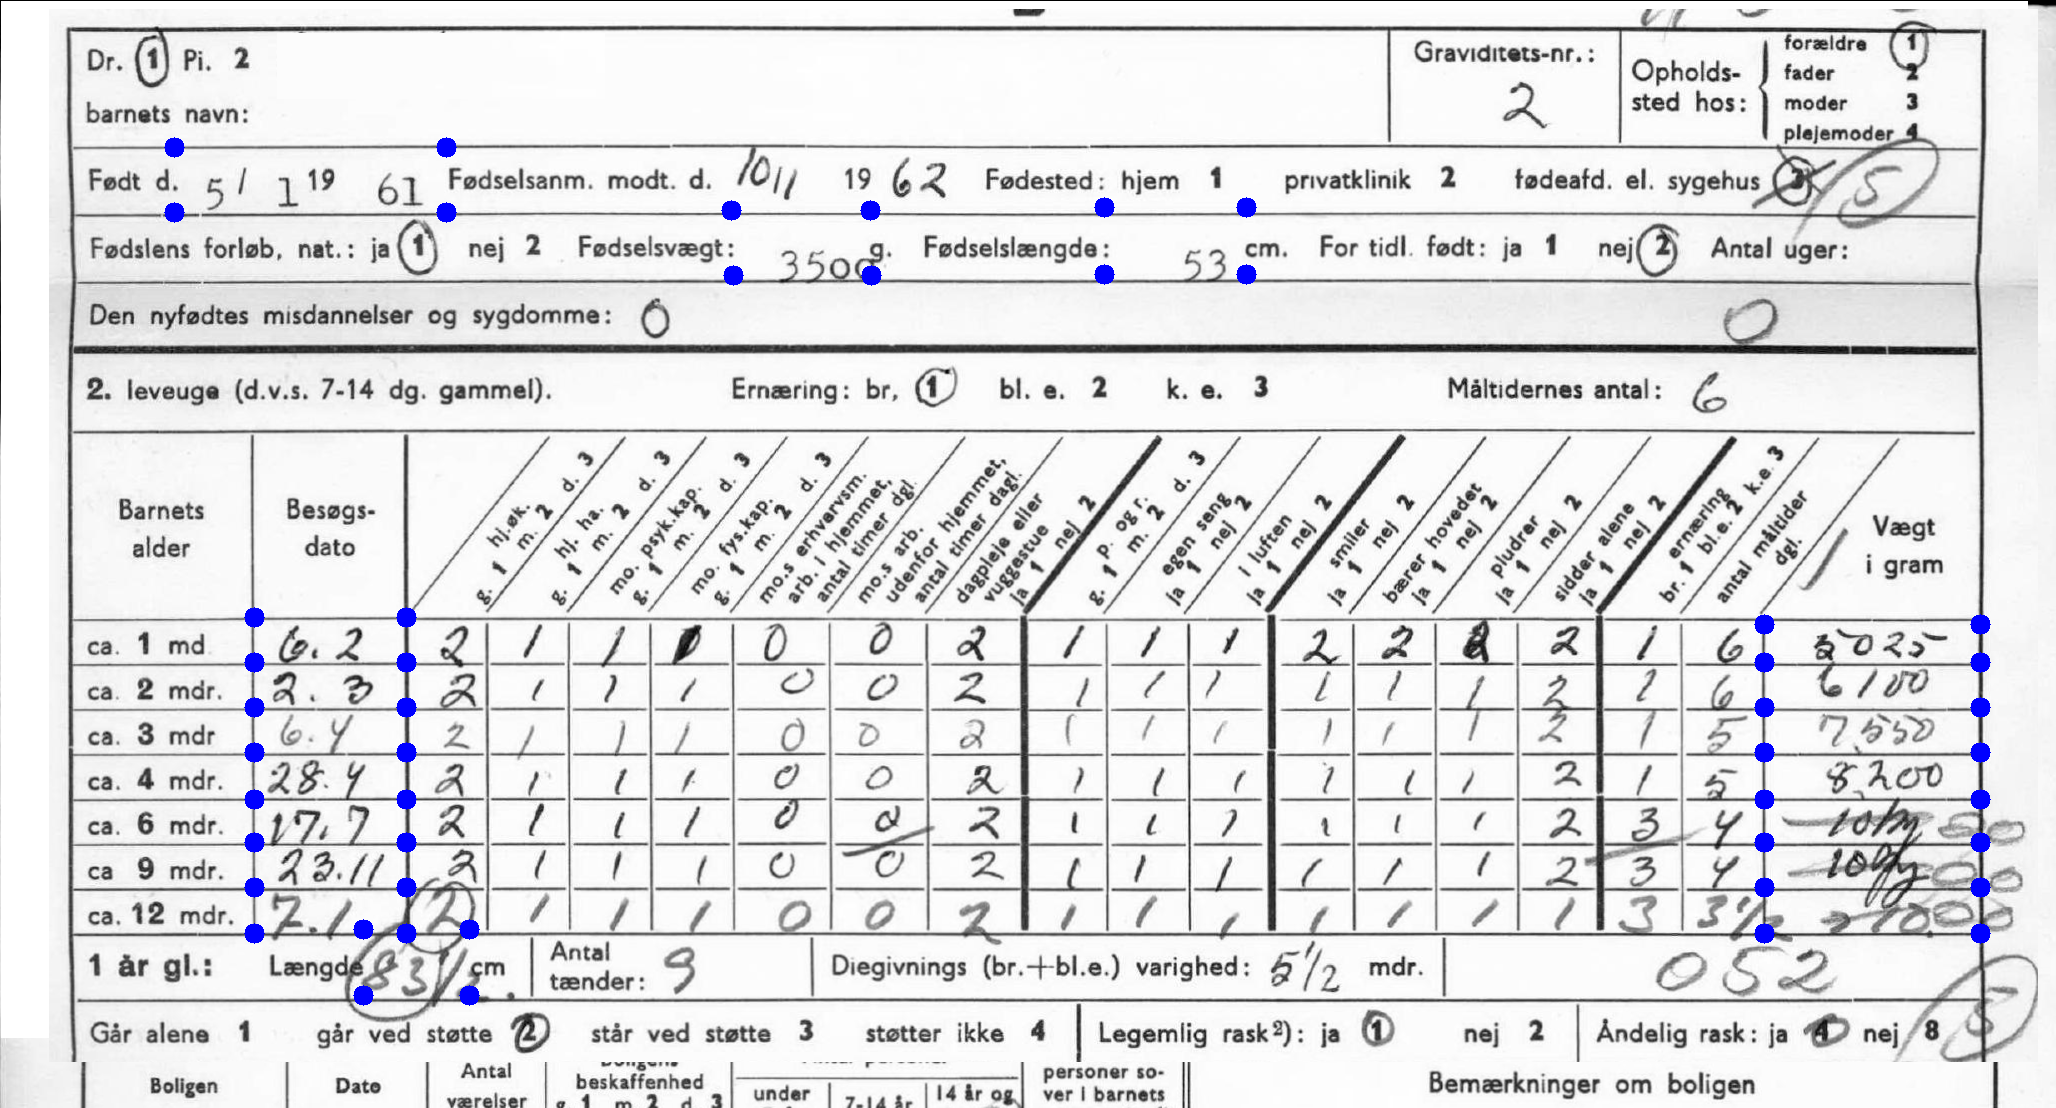 Dr. 1 Pi. 2
barnets navn:
Graviditets-nr.: 2
Opholds-sted hos: forældre 1 fader 2 moder 3 plejemoder 4
Født d. 5/ 1 19 61 Fødselsanm. modt. d. 10/1 19 62 Fødested: hjem 1 privatklinik 2 fødeafd. el. sygehus 3 5
Fødslens forløb, nat.: ja 1 nej 2 Fødselsvægt: 3500 g. Fødselslængde: 53 cm. For tidl. født: ja 1 nej 2 Antal uger:
Den nyfødtes misdannelser og sygdomme: 0 0
2. leveuge (d.v.s. 7-14 dg. gammel). Ernæring: br. 1 bl. e. 2 k. e. 3 Måltidernes antal: 6
Barnets alder
Besøgs-dato
hj.øk. g. 1 m. 2 d. 3
hj. ha. g. 1 m. 2 d. 3
mo. psyk.kap. g. 1 m. 2 d. 3
mo. fys.kap. g. 1 m. 2 d. 3
mo.s erhvervsm. arb. i hjemmet, antal timer dgl.
mo.s arb. udenfor hjemmet, antal timer dagl.
dagpleje eller vuggestue ja 1 nej 2
p. og r. g. 1 m. 2 d. 3
egen seng ja 1 nej 2
i luften ja 1 nej 2
smiler ja 1 nej 2
bærer hovedet ja 1 nej 2
pludrer ja 1 nej 2
sidder alene ja 1 nej 2
ernæring br. 1 bl.e. 2 k.e. 3
antal måltider dgl.
Vægt i gram
ca. 1 md 6.2 2 1 1 1 0 0 2 1 1 1 2 2 2 2 1 6 5025
ca. 2 mdr. 2.3 2 1 1 1 0 0 2 1 1 1 1 1 1 2 1 6 6100
ca. 3 mdr 6.4 2 1 1 1 0 0 2 1 1 1 1 1 1 2 1 5 7,550
ca. 4 mdr. 28.4 2 1 1 1 0 0 2 1 1 1 1 1 1 2 1 5 8,200
ca. 6 mdr. 17.7 2 1 1 1 0 0 2 1 1 1 1 1 1 2 3 4
ca 9 mdr. 23.11 2 1 1 1 0 0 2 1 1 1 1 1 1 2 3 4
ca. 12 mdr. 7.1 2 1 1 1 0 0 2 1 1 1 1 1 1 1 3 3 1/2
1 år gl.: Længde 83 1/2 cm Antal tænder: 9 Diegivnings (br.+bl.e.) varighed: 5 1/2 mdr. 052
Går alene 1 går ved støtte 2 står ved støtte 3 støtter ikke 4 Legemlig rask²): ja 1 nej 2 Åndelig rask: ja nej 8 5
Boligen Dato Antal værelser beskaffenhed g. 1 m. 2 d. 3 under 7-14 år 14 år og personer so-ver i barnets Bemærkninger om boligen